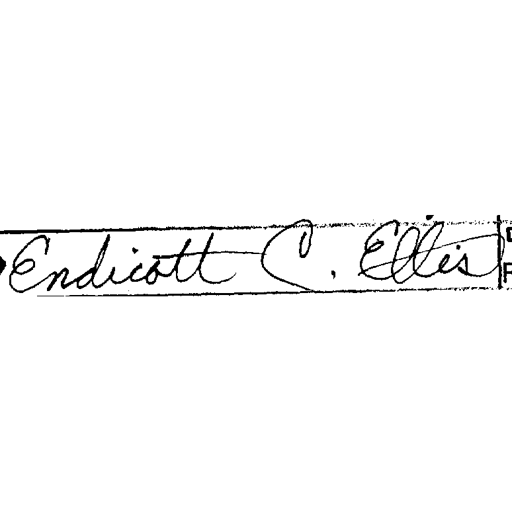 Endicott C. Ellis